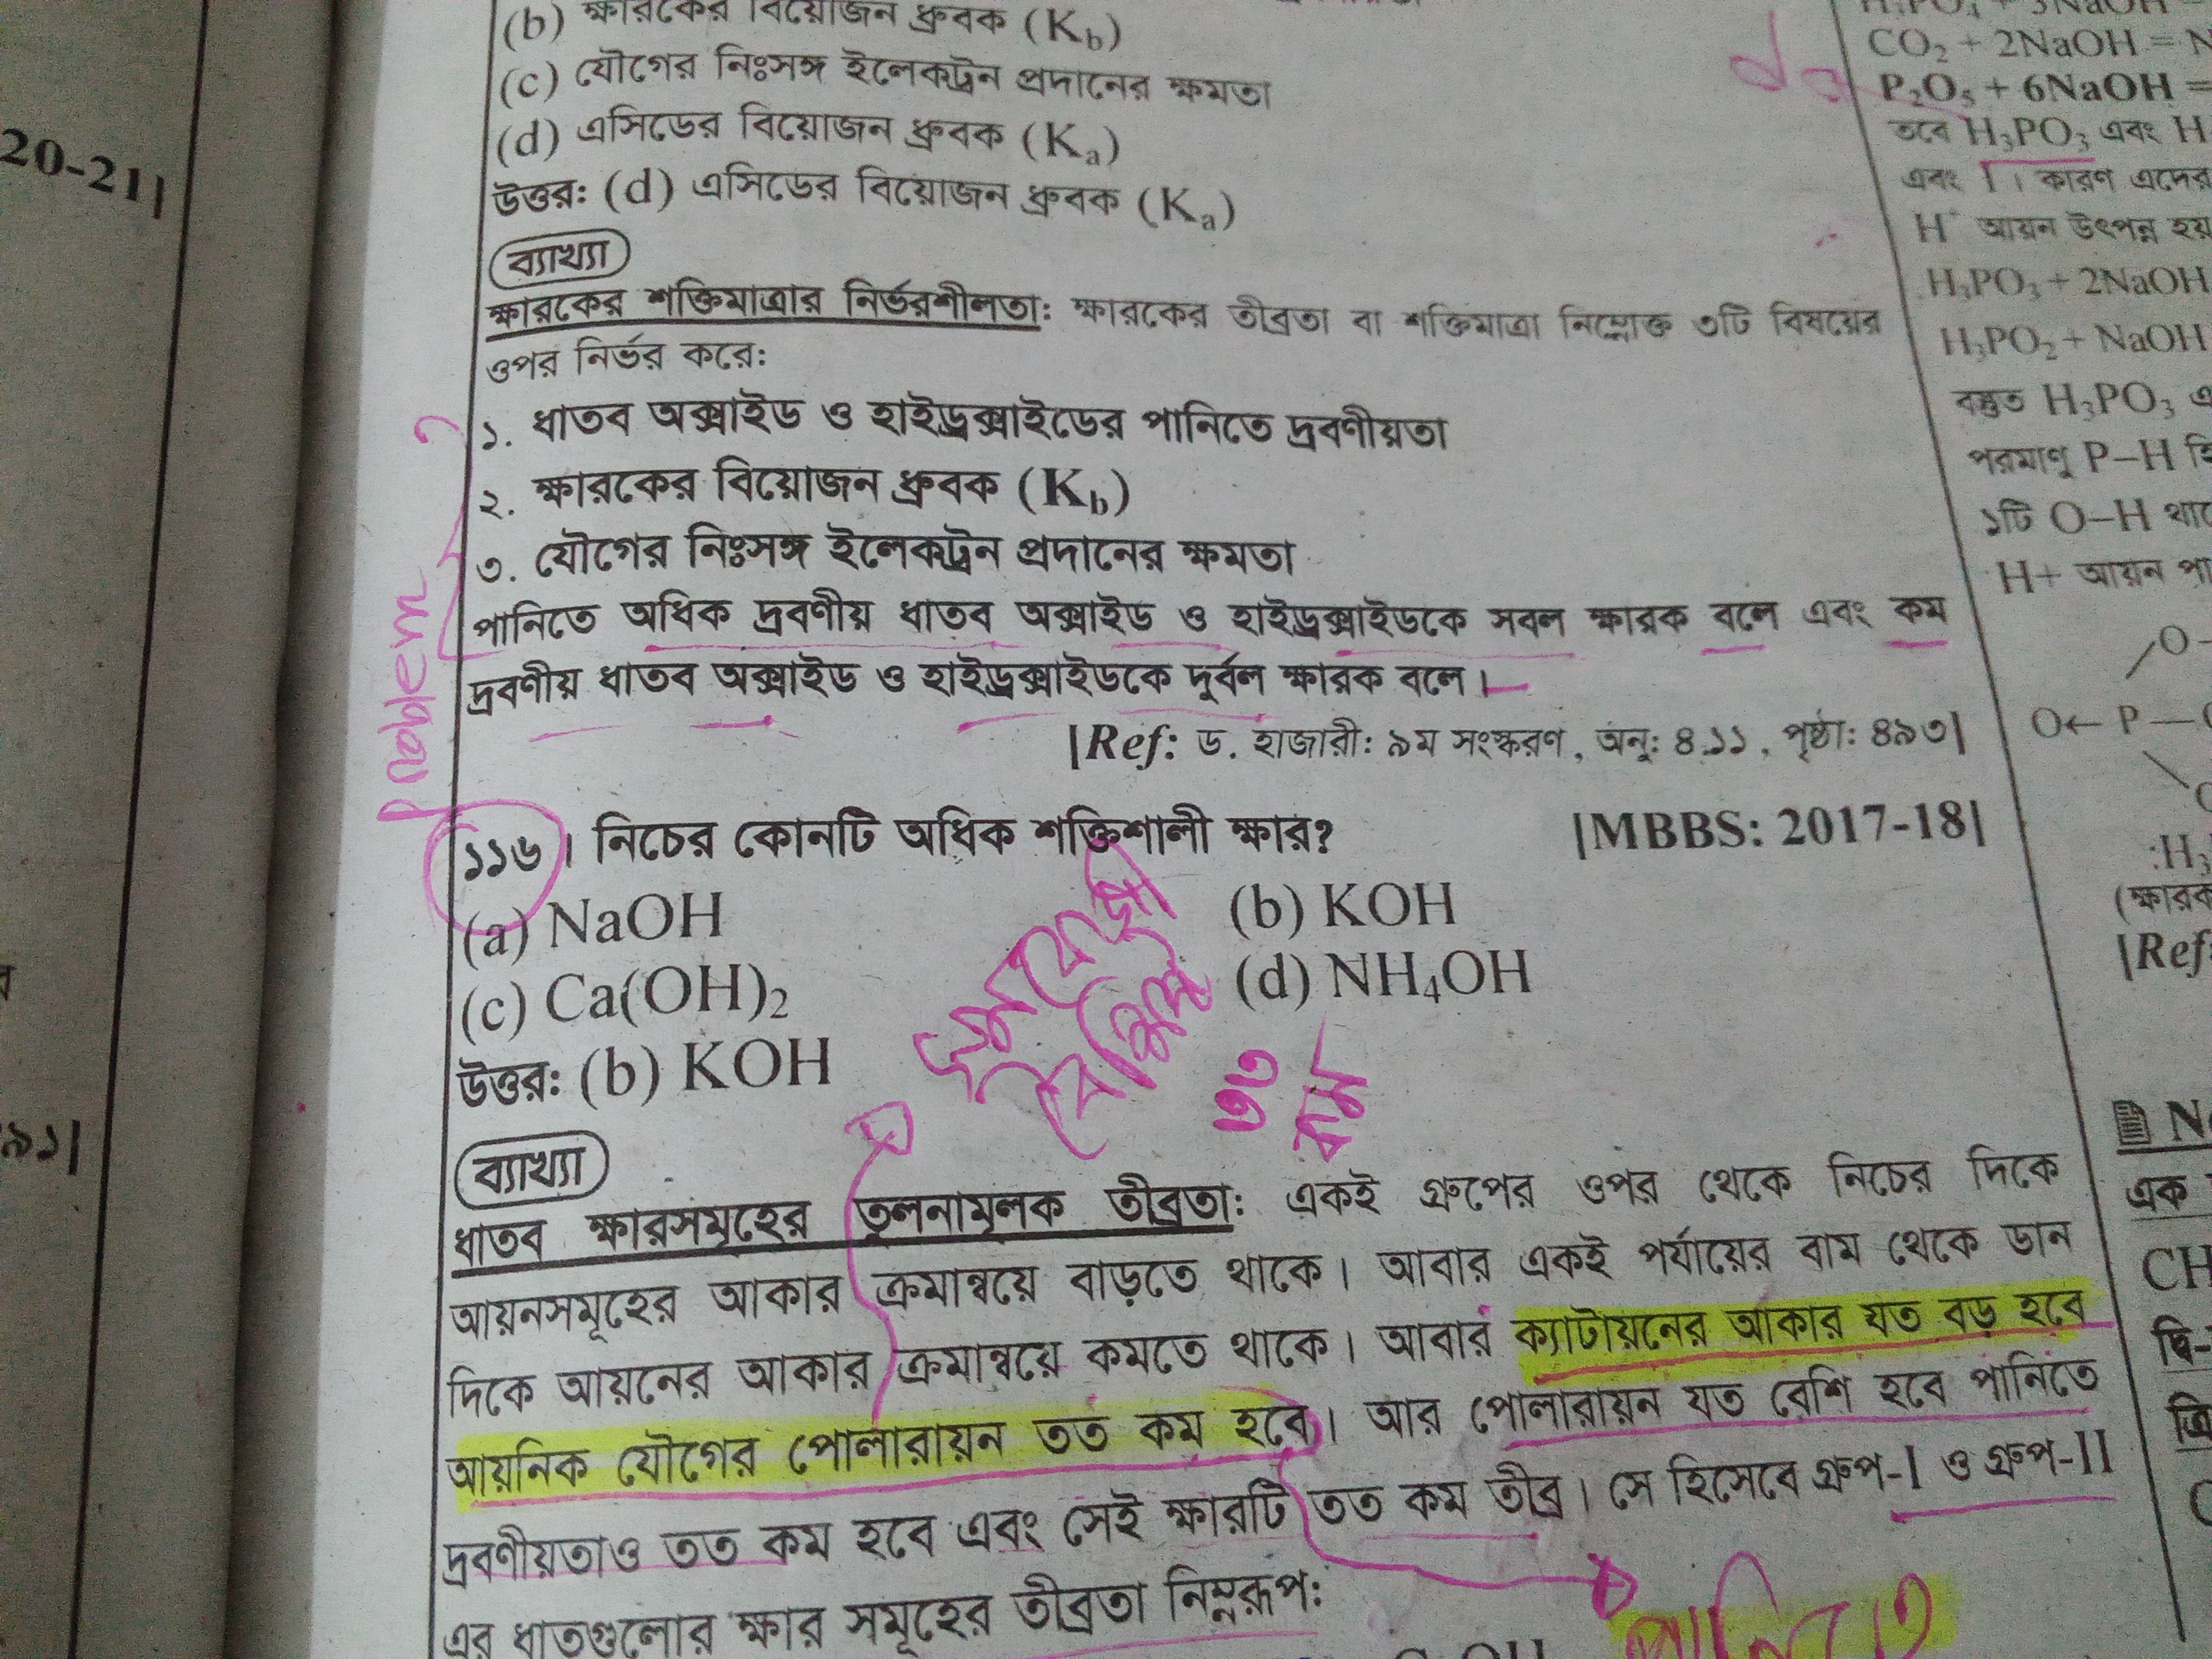 20-21]
৯১]
(b) ক্ষারকের বিয়োজন ধ্রুবক (K_b)
(c) যৌগের নিঃসঙ্গ ইলেকট্রন প্রদানের ক্ষমতা
(d) এসিডের বিয়োজন ধ্রুবক (K_a)
উত্তর: (d) এসিডের বিয়োজন ধ্রুবক (K_a)
ব্যাখ্যা
ক্ষারকের শক্তিমাত্রার নির্ভরশীলতা: ক্ষারকের তীব্রতা বা শক্তিমাত্রা নিম্নোক্ত ৩টি বিষয়ের
ওপর নির্ভর করে:
১. ধাতব অক্সাইড ও হাইড্রক্সাইডের পানিতে দ্রবণীয়তা
২. ক্ষারকের বিয়োজন ধ্রুবক (K_b)
৩. যৌগের নিঃসঙ্গ ইলেকট্রন প্রদানের ক্ষমতা
পানিতে অধিক দ্রবণীয় ধাতব অক্সাইড ও হাইড্রক্সাইডকে সবল ক্ষারক বলে এবং কম
দ্রবণীয় ধাতব অক্সাইড ও হাইড্রক্সাইডকে দুর্বল ক্ষারক বলে।
[Ref: ড. হাজারী: ৯ম সংস্করণ, অনু: ৪.১১, পৃষ্ঠা: ৪৯৩]
problem
১১৬। নিচের কোনটি অধিক শক্তিশালী ক্ষার? [MBBS: 2017-18]
(a) NaOH (b) KOH
(c) Ca(OH)₂ (d) NH₄OH
উত্তর: (b) KOH
তত
কম
ব্যাখ্যা
ধাতব ক্ষারসমূহের তুলনামূলক তীব্রতা: একই গ্রুপের ওপর থেকে নিচের দিকে
আয়নসমূহের আকার ক্রমান্বয়ে বাড়তে থাকে। আবার একই পর্যায়ের বাম থেকে ডান
দিকে আয়নের আকার ক্রমান্বয়ে কমতে থাকে। আবার ক্যাটায়নের আকার যত বড় হবে
আয়নিক যৌগের পোলারায়ন তত কম হবে। আর পোলারায়ন যত বেশি হবে পানিতে
দ্রবণীয়তাও তত কম হবে এবং সেই ক্ষারটি তত কম তীব্র। সে হিসেবে গ্রুপ-I ও গ্রুপ-II
এর ধাতগুলোর ক্ষার সমূহের তীব্রতা নিম্নরূপ:
পানিতে
CO₂ + 2NaOH = N
P₂O₅ + 6NaOH =
তবে H₃PO₃ এবং H
এবং 1। কারণ এদের
H⁺ আয়ন উৎপন্ন হয়
H₃PO₃ + 2NaOH
H₃PO₂ + NaOH
বস্তুত H₃PO₃ এ
পরমাণু P–H
১টি O–H থা
H+ আয়ন পা
O
O← P —
:H₃
(ক্ষারক
[Ref:
এক
CH
দ্বি-
ত্রি